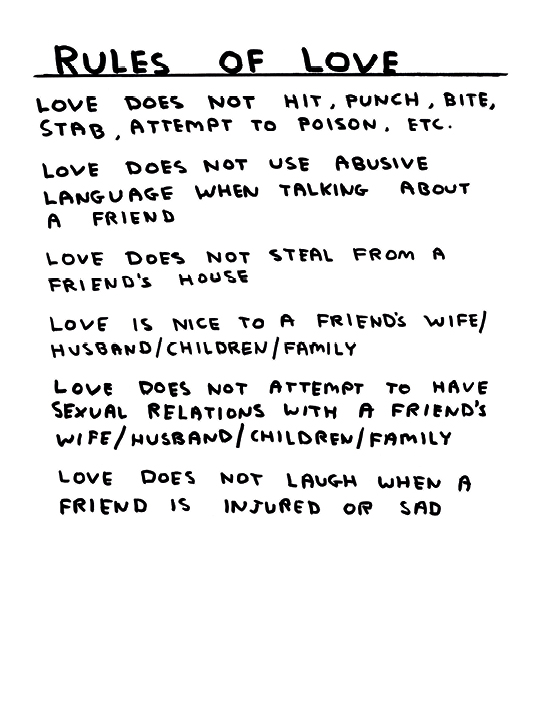 RULES OF LOVE
LOVE DOES NOT HIT, PUNCH, BITE,
STAB, ATTEMPT TO POISON, ETC.
LOVE DOES NOT USE ABUSIVE
LANGUAGE WHEN TALKING ABOUT
A FRIEND
LOVE DOES NOT STEAL FROM A
FRIEND'S HOUSE
LOVE IS NICE TO A FRIEND'S WIFE/
HUSBAND/CHILDREN/FAMILY
LOVE DOES NOT ATTEMPT TO HAVE
SEXUAL RELATIONS WITH A FRIEND'S
WIFE/HUSBAND/CHILDREN/FAMILY
LOVE DOES NOT LAUGH WHEN A
FRIEND IS INJURED OR SAD